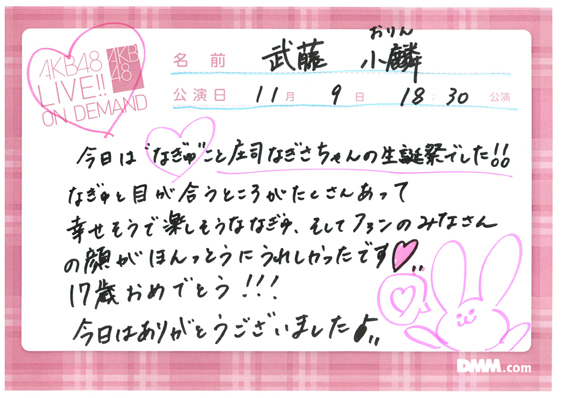 AKB48
LIVE!!
ON DEMAND
AKB
48
名前 武藤 小麟
おりん
公演日 11月 9日 18:30 公演
今日は"なぎゅ"こと庄司なぎさちゃんの生誕祭でした!!
なぎゅと目が合うところがたくさんあって
幸せそうで楽しそうななぎゅ、そしてファンのみなさん
の顔がほんっとうにうれしかったです♡,,
17歳おめでとう!!!
今日はありがとうございました♪,,
DMM.com